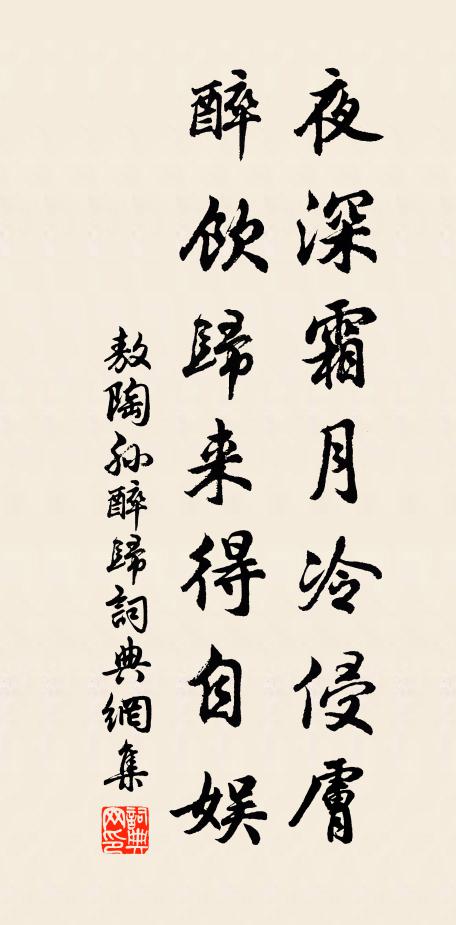 夜深霜月冷侵膚
醉飲歸来得自娱
敖陶孙醉歸詞典網集
詞典網印